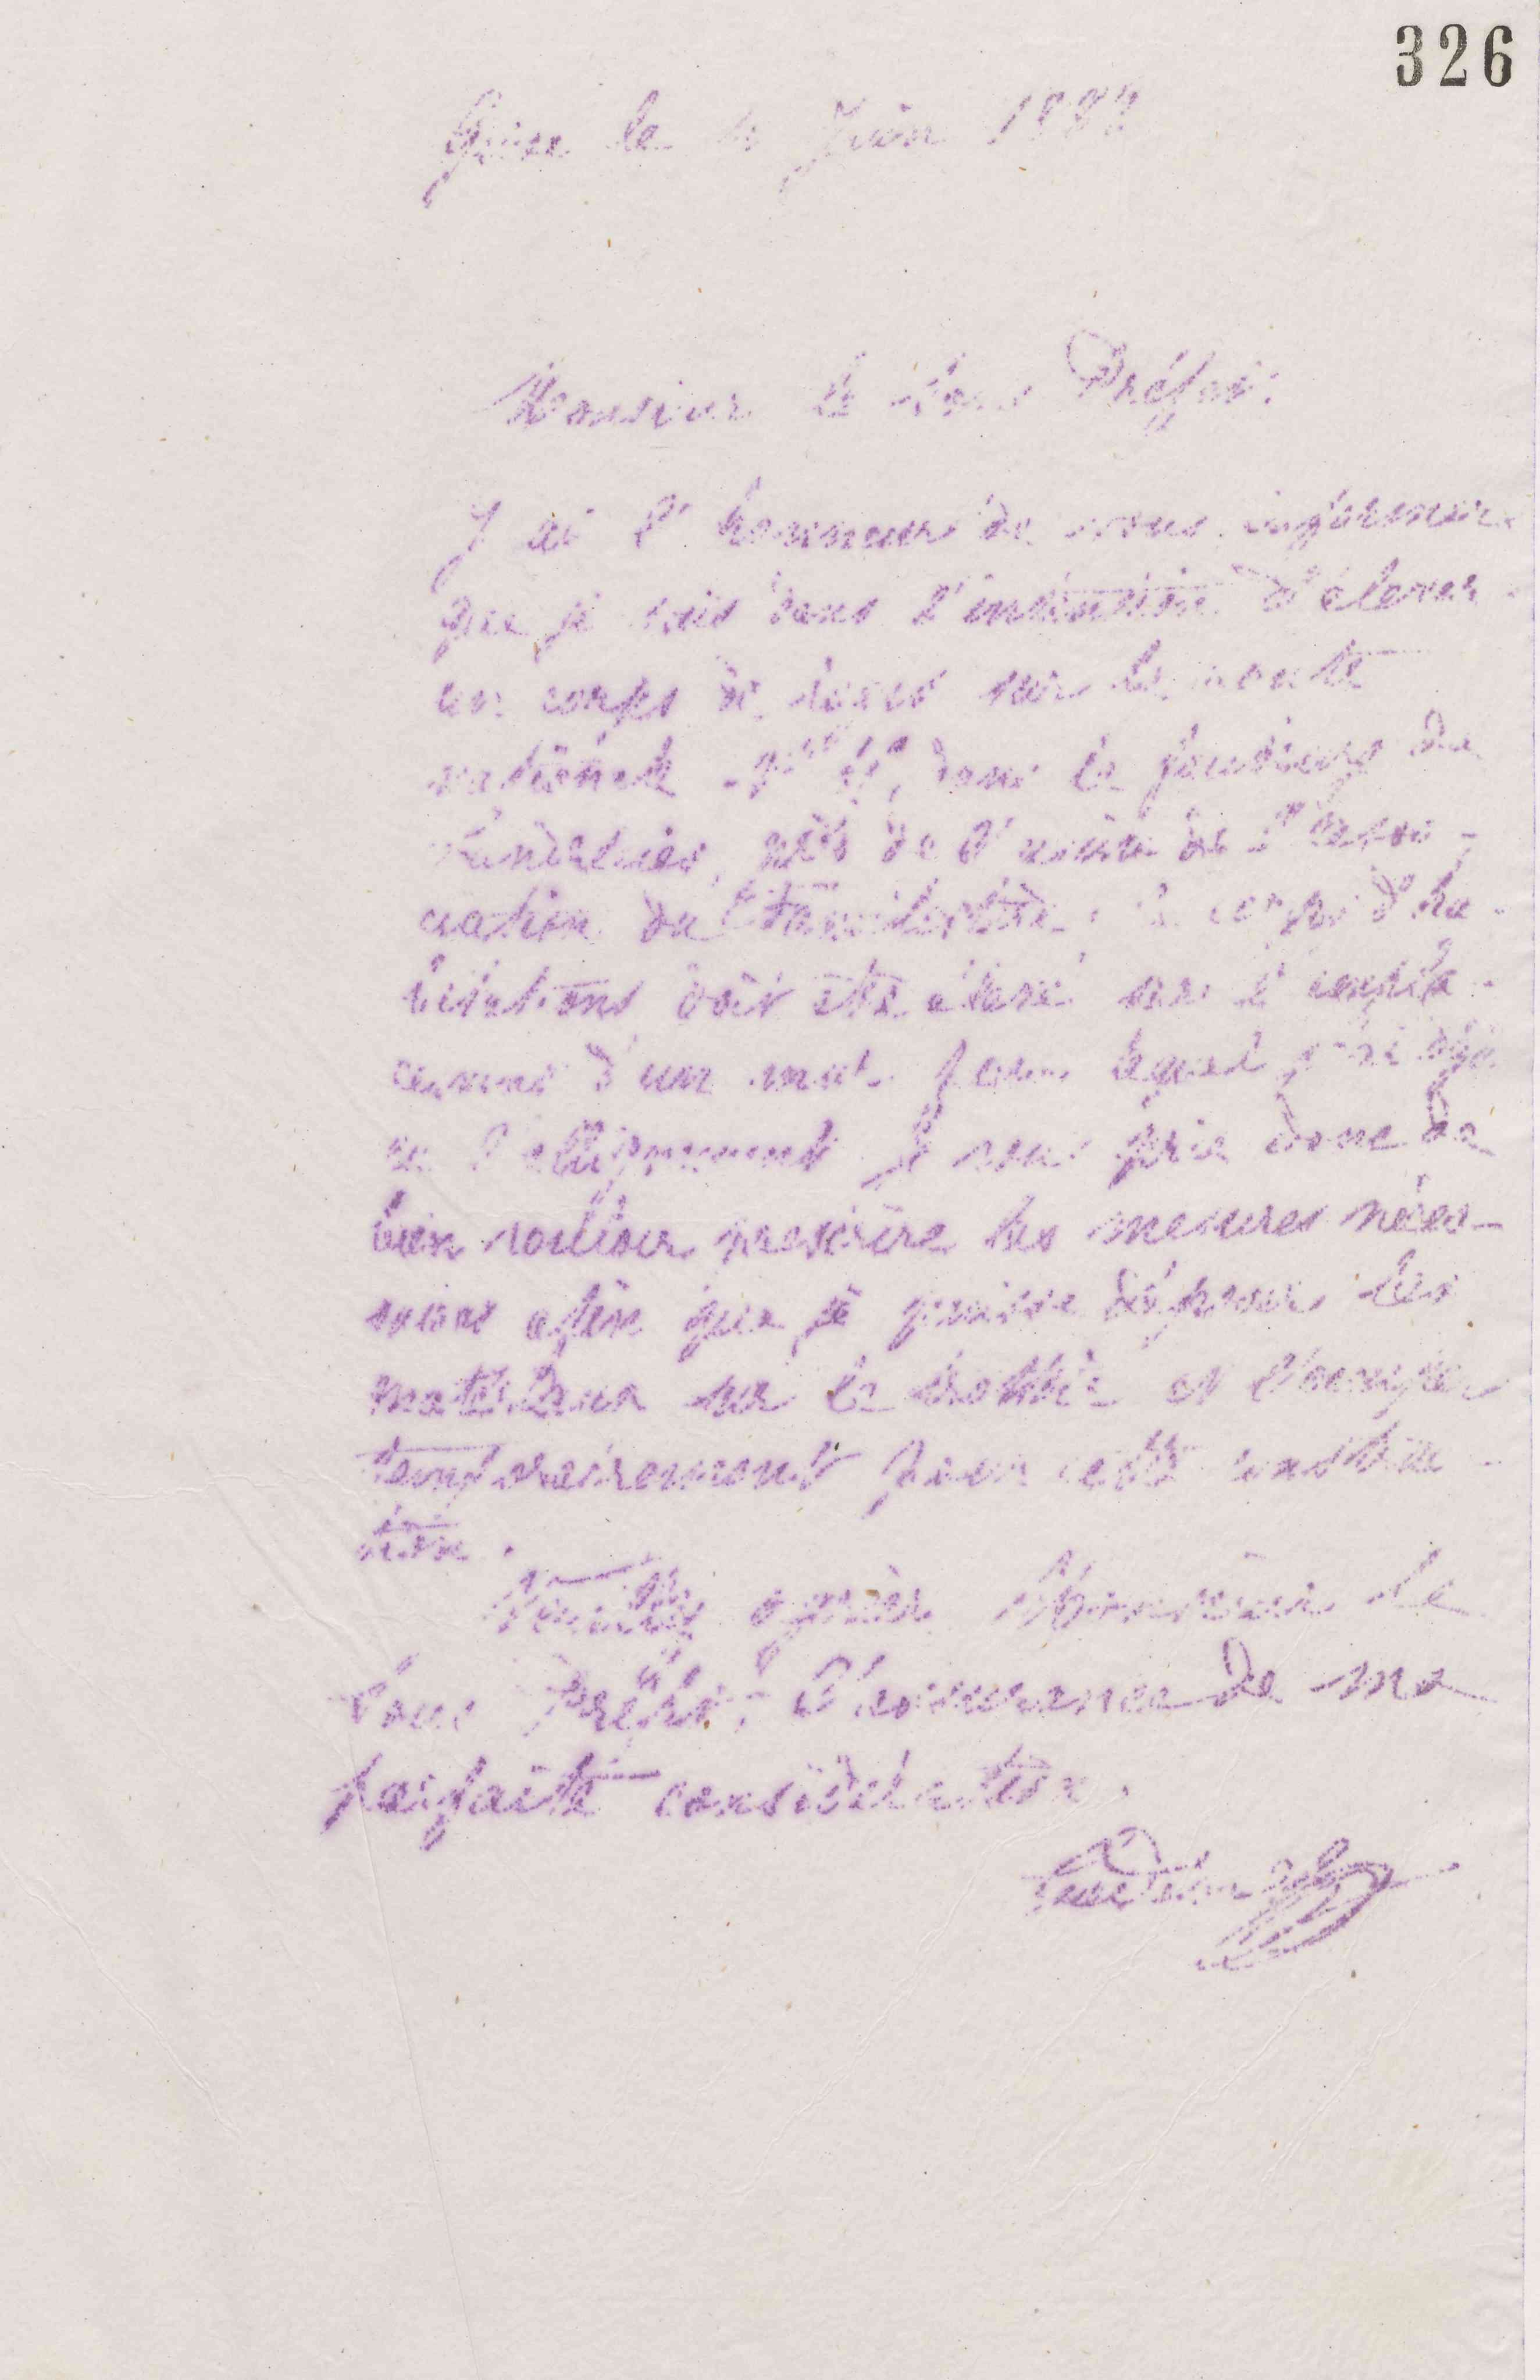 326
Guise le 4 Juin 1882
Monsieur le Sous Préfet,
J'ai l'honneur de vous informer
que je suis dans l'intention d'élever
un corps de logis sur la route
nationale dans le faubourg de
Landrecies, près de l'usine de l'Asso-
ciation du Familistère. Ce corps d'ha-
bitations doit être élevé sur l'empla-
cement d'un mur pour lequel j'ai déjà
eu l'alignement. Je vous prie donc de
bien vouloir prescrire les mesures néces-
saires afin que je puisse déposer les
matériaux sur le trottoir et l'occuper
temporairement pour cette construc-
tion.
Veuillez agréer, Monsieur le
Sous Préfet, l'assurance de ma
parfaite considération.
Godin